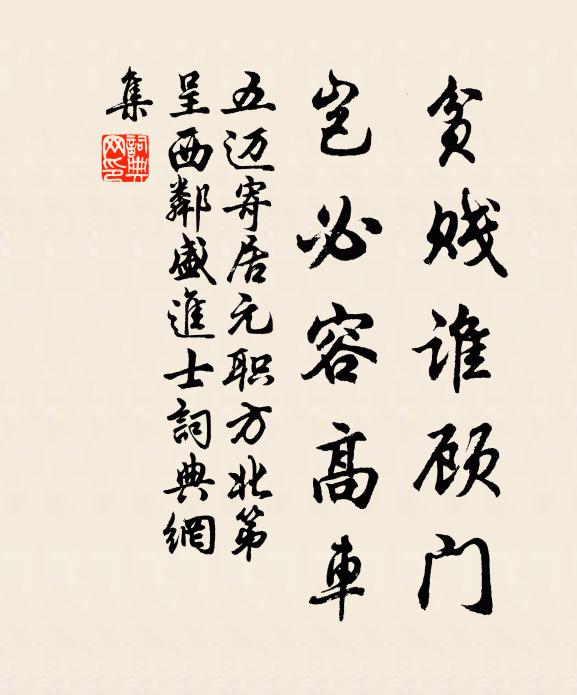 贫贱谁顾门
岂必容高車
五迈寄居元职方北第
呈西鄰盛進士詞典網
集
詞典网印